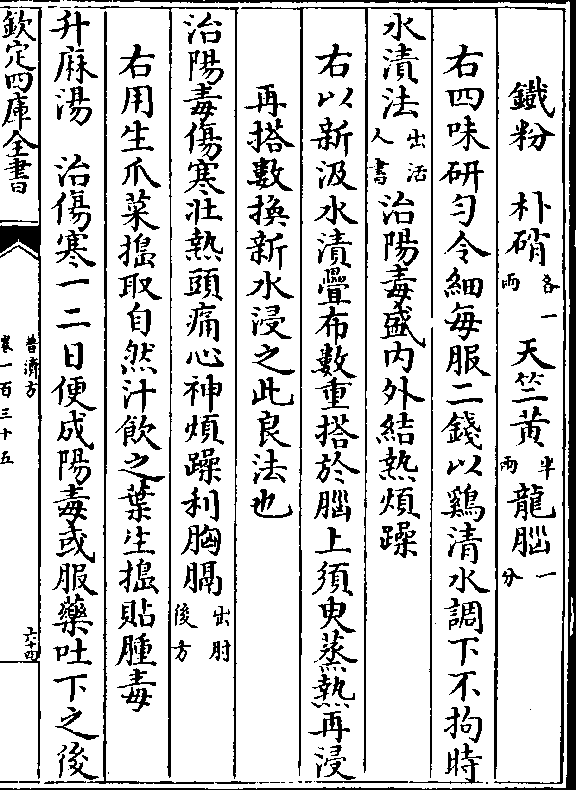 鐵粉　朴硝各一兩　天竺黃半兩　龍腦一分
右四味研勻令細每服二錢以鷄清水調下不拘時
水漬法出活人書　治陽毒盛內外結熱煩躁
右以新汲水漬疊布數重搭於腦上須臾蒸熱再浸
再搭數換新水浸之此良法也
治陽毒傷寒壯熱頭痛心神煩躁利胸膈出肘後方
右用生爪菜搗取自然汁飲之葉生搗貼腫毒
升麻湯　治傷寒一二日便成陽毒或服藥吐下之後
欽定四庫全書
普濟方
卷一百三十五
六十四